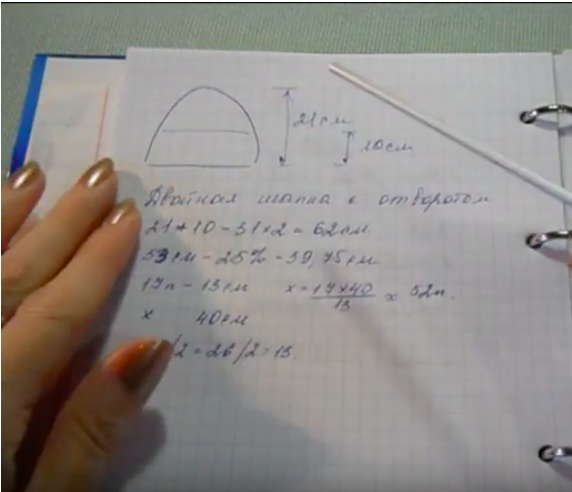 21см
10см
Двойная шапка с отворотом
21+10=31×2=62см
53см-25%=39,75см
17п-13см x=17×40/13 ≈ 52п.
x 40см
/2=26/2=13.